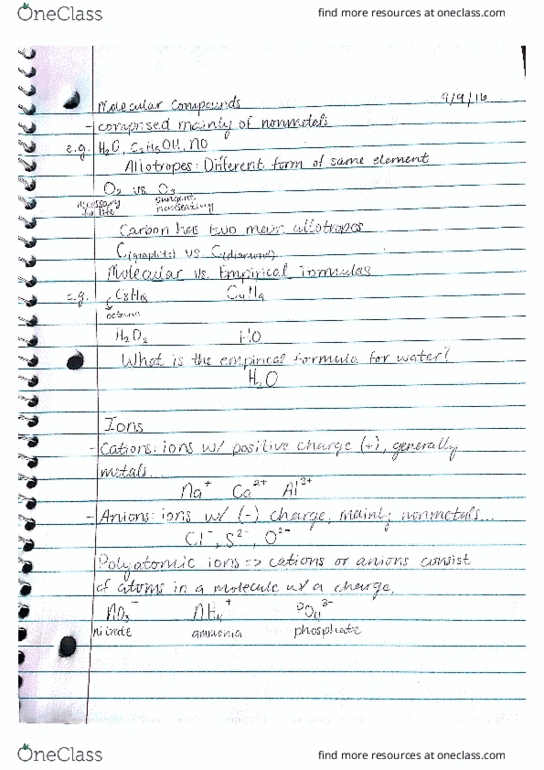 OneClass
find more resources at oneclass.com
Molecular Compounds 9/9/16
- comprised mainly of nonmetals
e.g. H₂O, C₂H₅OH, NO
Allotropes: Different form of same element
O₂ vs O₃
necessary for life
pungent
Carbon has two main allotropes
C(graphite) vs C(diamond)
Molecular vs. Empirical formulas
e.g. C₈H₁₈ C₄H₉
H₂O₂ HO
What is the empirical formula for water?
H₂O
Ions
- Cations: ions w/ positive charge (+), generally
metals...
Na⁺ Ca²⁺ Al³⁺
- Anions: ions w/ (-) charge, mainly nonmetals...
Cl⁻, S²⁻, O²⁻
Polyatomic ions => cations or anions consist
of atoms in a molecule w/ a charge.
NO₃⁻ NH₄⁺ PO₄³⁻
nitrate ammonia phosphate
OneClass
find more resources at oneclass.com